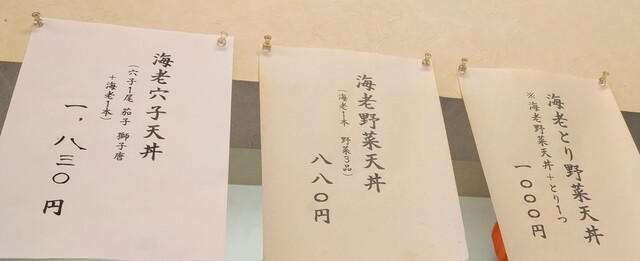 海老穴子天丼
(穴子1尾 茄子 獅子唐
+海老1本)
一,八三〇円
海老野菜天丼
(海老1本 野菜3品)
八八〇円
海老とり野菜天丼
※海老野菜天丼+とり1つ
一〇〇〇円